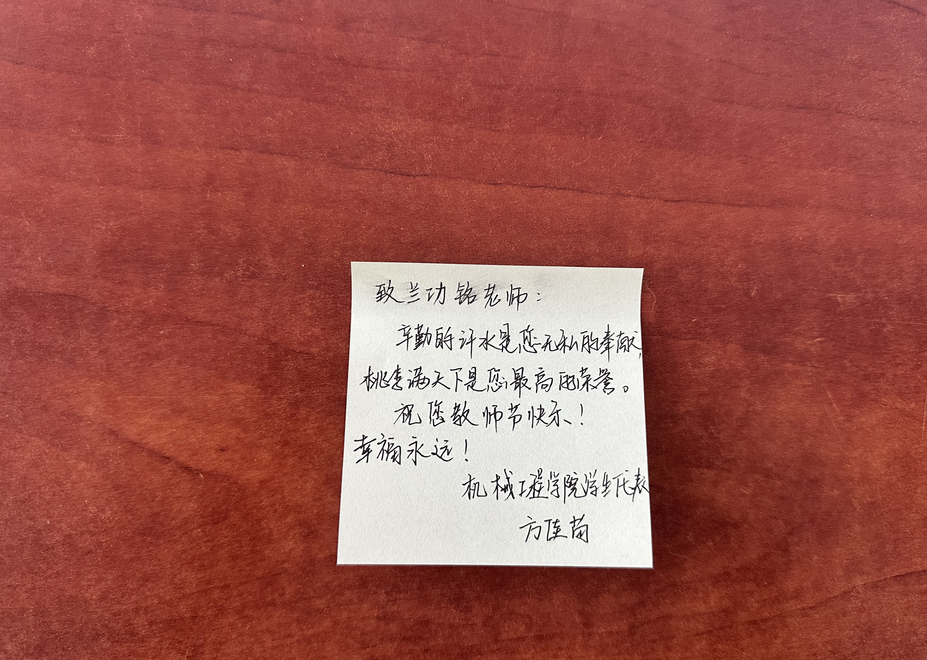 致兰功铭老师：
辛勤的汗水是您无私的奉献，
桃李满天下是您最高的荣誉。
祝您教师节快乐！
幸福永远！
机械工程学院学生代表
方佳苗